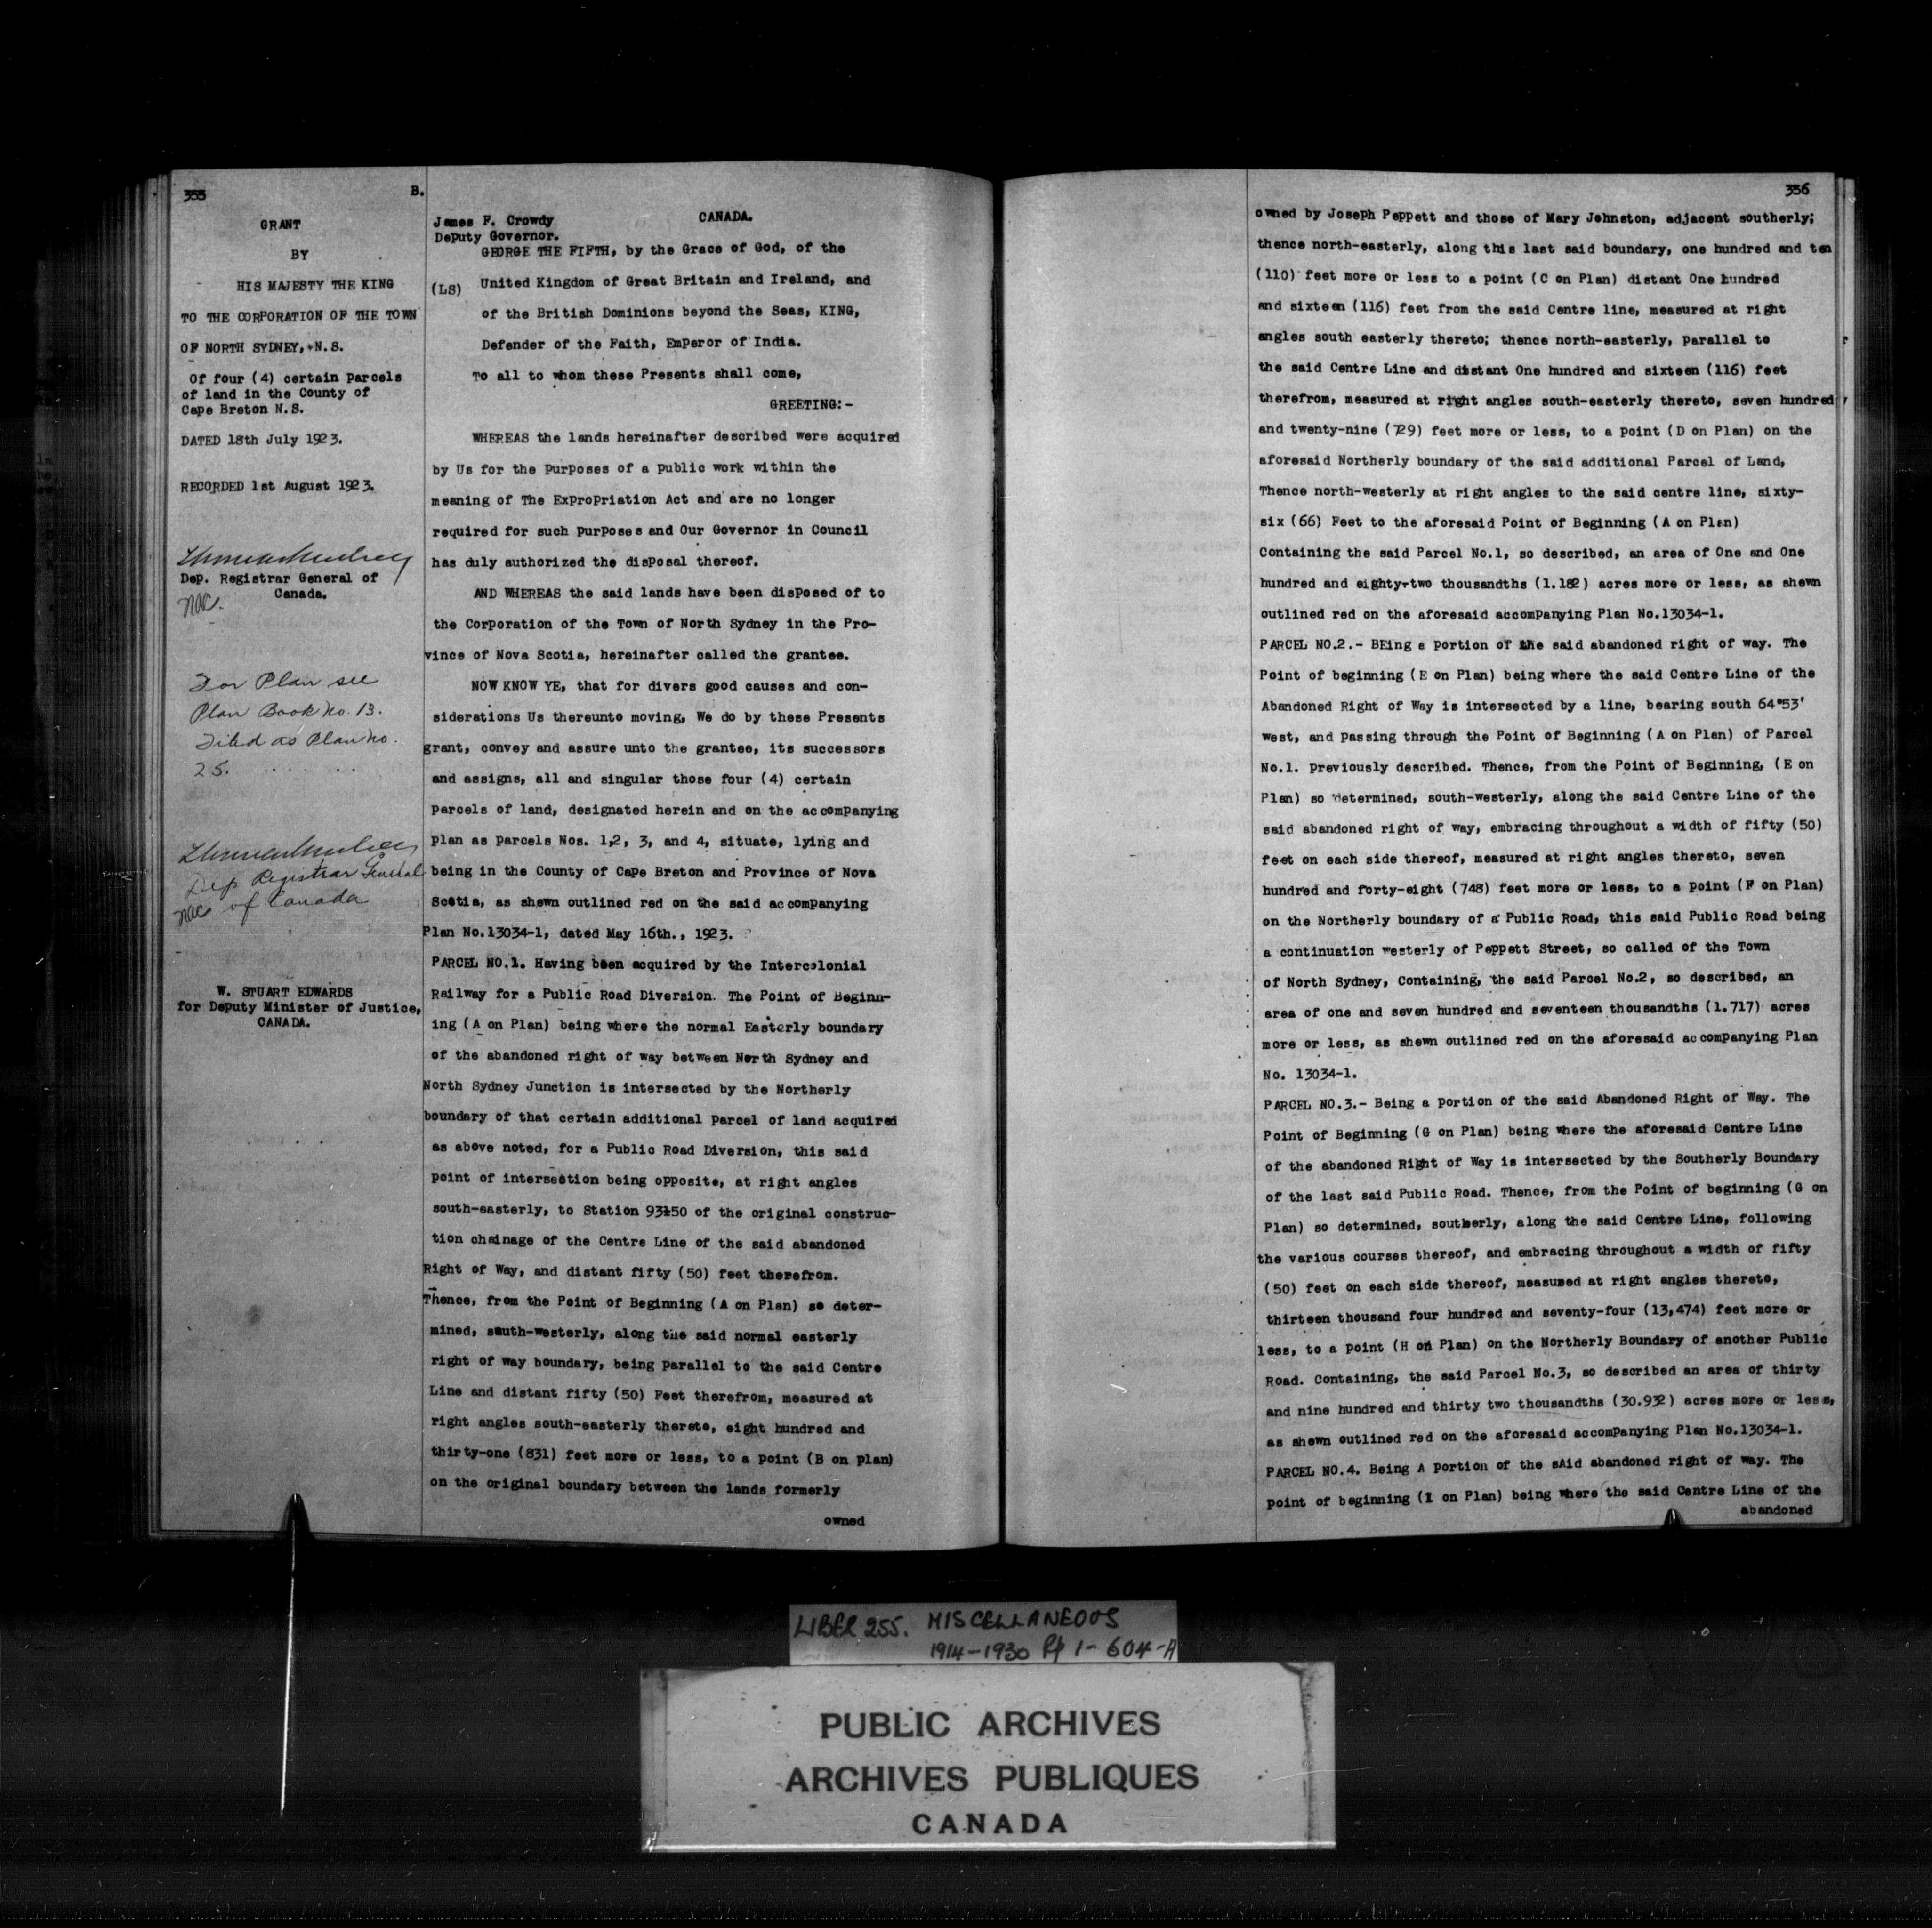 355
B.
GRANT
BY
HIS MAJESTY THE KING
TO THE CORPORATION OF THE TOWN
OF NORTH SYDNEY, N.S.
Of four (4) certain parcels
of land in the County of
Cape Breton N.S.
DATED 18th July 1923.
RECORDED 1st August 1923.
Dep. Registrar General of
Canada.
For Plan see
Plan Book No. 13.
Filed as Plan No.
25.
Dep Registrar General
of Canada
W. STUART EDWARDS
for Deputy Minister of Justice,
CANADA.
James F. Crowdy
Deputy Governor.
CANADA.
GEORGE THE FIFTH, by the Grace of God, of the
(LS) United Kingdom of Great Britain and Ireland, and
of the British Dominions beyond the Seas, KING,
Defender of the Faith, Emperor of India.
To all to whom these Presents shall come,
GREETING:-
WHEREAS the lands hereinafter described were acquired
by Us for the purposes of a public work within the
meaning of The Expropriation Act and are no longer
required for such purposes and Our Governor in Council
has duly authorized the disposal thereof.
AND WHEREAS the said lands have been disposed of to
the Corporation of the Town of North Sydney in the Pro-
vince of Nova Scotia, hereinafter called the grantee.
NOW KNOW YE, that for divers good causes and con-
siderations Us thereunto moving, We do by these Presents
grant, convey and assure unto the grantee, its successors
and assigns, all and singular those four (4) certain
parcels of land, designated herein and on the accompanying
plan as parcels Nos. 1,2, 3, and 4, situate, lying and
being in the County of Cape Breton and Province of Nova
Scotia, as shewn outlined red on the said accompanying
Plan No.13034-1, dated May 16th., 1923.
PARCEL NO.1. Having been acquired by the Intercolonial
Railway for a Public Road Diversion. The Point of Beginn-
ing (A on Plan) being where the normal Easterly boundary
of the abandoned right of way between North Sydney and
North Sydney Junction is intersected by the Northerly
boundary of that certain additional parcel of land acquired
as above noted, for a Public Road Diversion, this said
point of intersection being opposite, at right angles
south-easterly, to Station 93+50 of the original construc-
tion chainage of the Centre Line of the said abandoned
Right of Way, and distant fifty (50) feet therefrom.
Thence, from the Point of Beginning (A on Plan) so deter-
mined, south-westerly, along the said normal easterly
right of way boundary, being parallel to the said Centre
Line and distant fifty (50) Feet therefrom, measured at
right angles south-easterly thereto, eight hundred and
thirty-one (831) feet more or less, to a point (B on plan)
on the original boundary between the lands formerly
owned
356
owned by Joseph Peppett and those of Mary Johnston, adjacent southerly;
thence north-easterly, along this last said boundary, one hundred and ten
(110) feet more or less to a point (C on Plan) distant One hundred
and sixteen (116) feet from the said Centre line, measured at right
angles south easterly thereto; thence north-easterly, parallel to
the said Centre Line and distant One hundred and sixteen (116) feet
therefrom, measured at right angles south-easterly thereto, seven hundred
and twenty-nine (729) feet more or less, to a point (D on Plan) on the
aforesaid Northerly boundary of the said additional Parcel of Land,
Thence north-westerly at right angles to the said centre line, sixty-
six (66) Feet to the aforesaid Point of Beginning (A on Plan)
Containing the said Parcel No.1, so described, an area of One and One
hundred and eighty-two thousandths (1.182) acres more or less, as shewn
outlined red on the aforesaid accompanying Plan No.13034-1.
PARCEL NO.2.- BEing a portion of the said abandoned right of way. The
Point of beginning (E on Plan) being where the said Centre Line of the
Abandoned Right of Way is intersected by a line, bearing south 64°53'
west, and passing through the Point of Beginning (A on Plan) of Parcel
No.1. previously described. Thence, from the Point of Beginning, (E on
Plan) so determined, south-westerly, along the said Centre Line of the
said abandoned right of way, embracing throughout a width of fifty (50)
feet on each side thereof, measured at right angles thereto, seven
hundred and forty-eight (748) feet more or less, to a point (F on Plan)
on the Northerly boundary of a Public Road, this said Public Road being
a continuation westerly of Peppett Street, so called of the Town
of North Sydney, Containing, the said Parcel No.2, so described, an
area of one and seven hundred and seventeen thousandths (1.717) acres
more or less, as shewn outlined red on the aforesaid accompanying Plan
No. 13034-1.
PARCEL NO.3.- Being a portion of the said Abandoned Right of Way. The
Point of Beginning (G on Plan) being where the aforesaid Centre Line
of the abandoned Right of Way is intersected by the Southerly Boundary
of the last said Public Road. Thence, from the Point of beginning (G on
Plan) so determined, southerly, along the said Centre Line, following
the various courses thereof, and embracing throughout a width of fifty
(50) feet on each side thereof, measured at right angles thereto,
thirteen thousand four hundred and seventy-four (13,474) feet more or
less, to a point (H on Plan) on the Northerly Boundary of another Public
Road. Containing, the said Parcel No.3, so described an area of thirty
and nine hundred and thirty two thousandths (30.932) acres more or less,
as shewn outlined red on the aforesaid accompanying Plan No.13034-1.
PARCEL NO.4. Being A portion of the sAid abandoned right of way. The
point of beginning (I on Plan) being where the said Centre Line of the
abandoned
LIBER 255. MISCELLANEOUS
1914-1930 Pp 1-604-A
PUBLIC ARCHIVES
ARCHIVES PUBLIQUES
CANADA